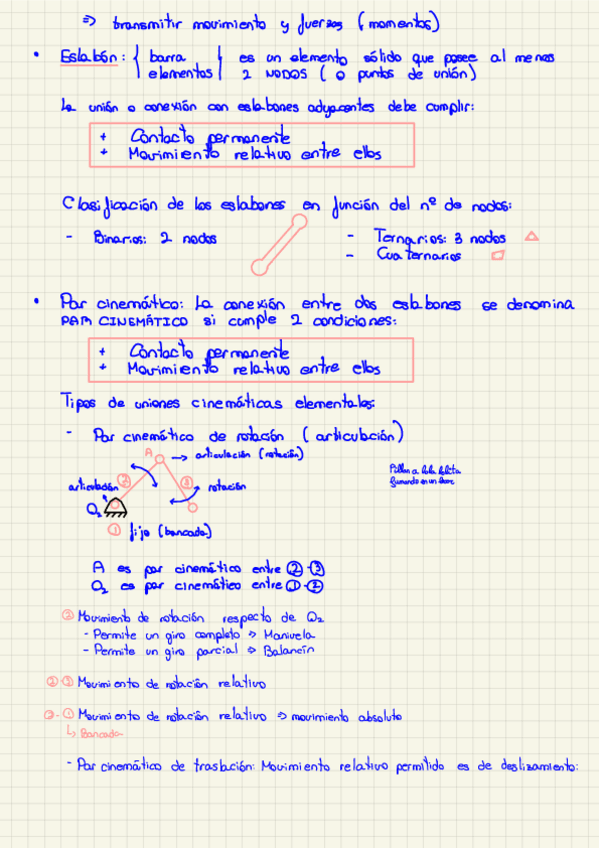 ⇒ transmitir movimiento y fuerzas (momentos)
• Eslabón: { barra } es un elemento sólido que posee al menos
elementos 2 NODOS (o puntos de unión)
La unión o conexión con eslabones adyacentes debe cumplir:
+ Contacto permanente
+ Movimiento relativo entre ellos
Clasificación de los eslabones en función del nº de nodos:
- Binarios: 2 nodos
- Ternarios: 3 nodos
- Cuaternarios
• Par cinemático: La conexión entre dos eslabones se denomina
PAR CINEMÁTICO si cumple 2 condiciones:
+ Contacto permanente
+ Movimiento relativo entre ellos
Tipos de uniones cinemáticas elementales:
- Par cinemático de rotación (articulación)
A → articulación (rotación)
articulación ② ③ rotación
O2
① fijo (bancada)
A es par cinemático entre ②-③
O2 es par cinemático entre ①-②
② Movimiento de rotación respecto de O2
- Permite un giro completo ⇒ Manivela
- Permite un giro parcial ⇒ Balancín
②-③ Movimiento de rotación relativo
②-① Movimiento de rotación relativo ⇒ movimiento absoluto
↳ Bancada
- Par cinemático de traslación: Movimiento relativo permitido es de deslizamiento: